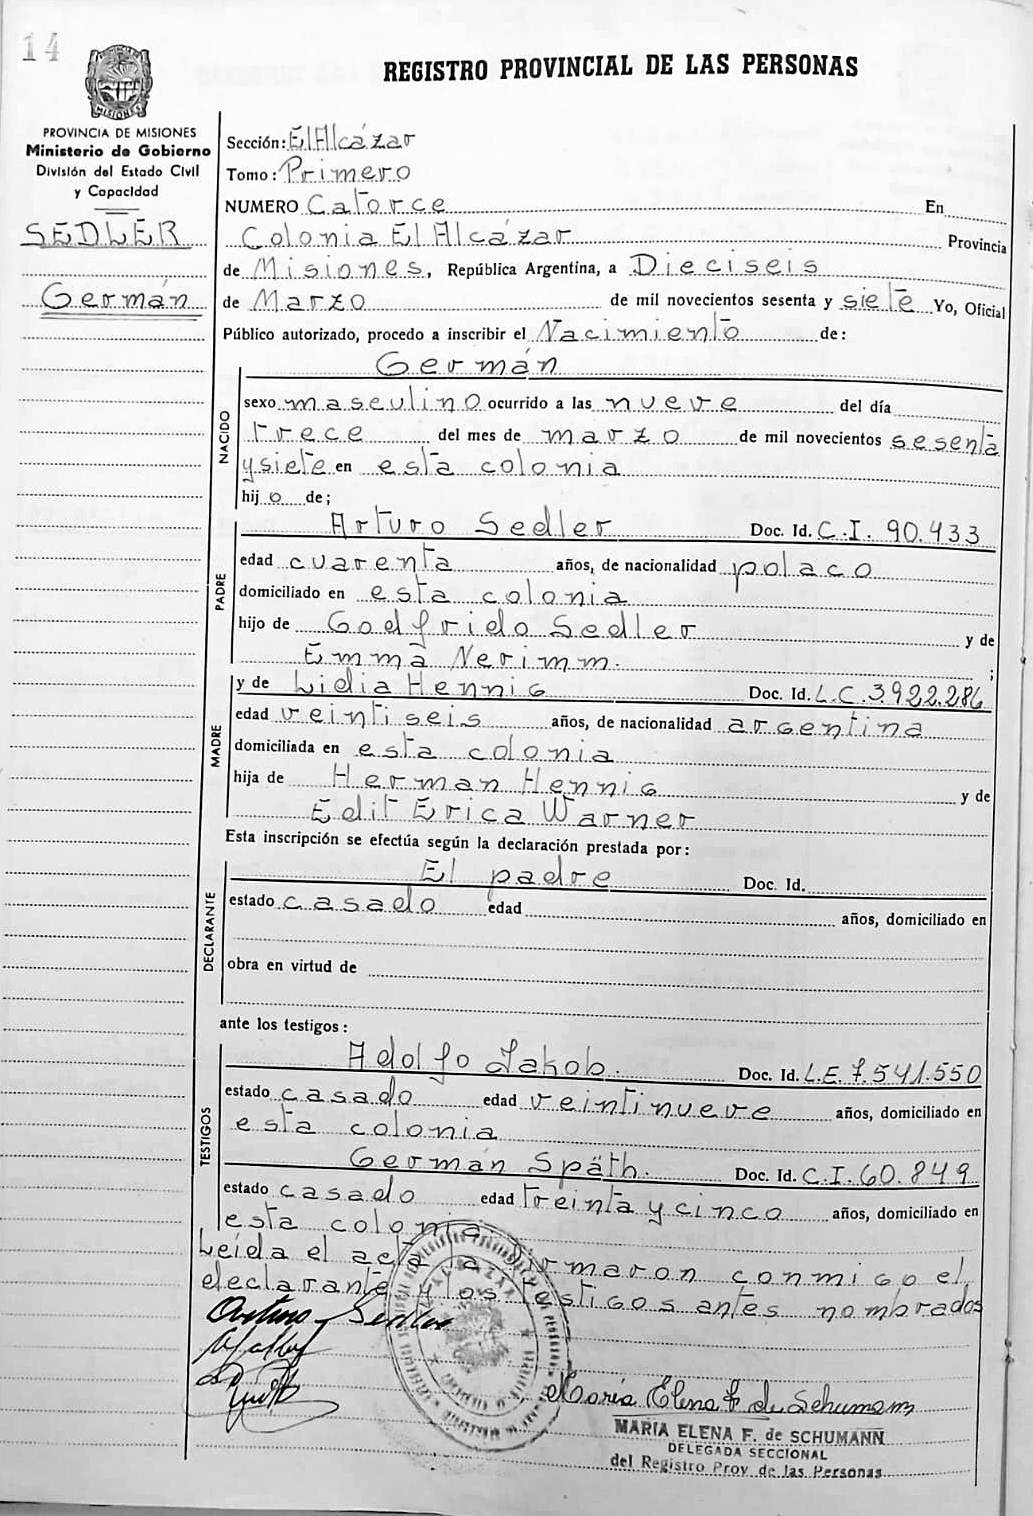 14
REGISTRO PROVINCIAL DE LAS PERSONAS
PROVINCIA DE MISIONES
MISIONES
PROVINCIA DE MISIONES
Ministerio de Gobierno
División del Estado Civil
y Capacidad
SEDLER
Germán
Sección: El Alcázar
Tomo: Primero
NUMERO Catorce En
Colonia El Alcázar Provincia
de Misiones, República Argentina, a Dieciseis
de Marzo de mil novecientos sesenta y siete Yo, Oficial
Público autorizado, procedo a inscribir el Nacimiento de:
Germán
NACIDO
sexo masculino ocurrido a las nueve del día
trece del mes de marzo de mil novecientos sesenta
y siete en esta colonia
hijo de;
PADRE
Arturo Sedler Doc. Id. C.I. 90.433
edad cuarenta años, de nacionalidad polaco
domiciliado en esta colonia
hijo de Godfrido Sedler y de
Emma Nerimm.;
MADRE
y de Lidia Hennig Doc. Id. L.C. 3.922.286
edad veintiseis años, de nacionalidad argentina
domiciliada en esta colonia
hija de Herman Hennig y de
Edit Erica Warner
Esta inscripción se efectúa según la declaración prestada por:
DECLARANTE
El padre Doc. Id.
estado casado edad años, domiciliado en
obra en virtud de
ante los testigos:
TESTIGOS
Adolfo Jakob. Doc. Id. L.E. 7.541.550
estado casado edad veintinueve años, domiciliado en
esta colonia
Germán Späth. Doc. Id. C.I. 60.849
estado casado edad treinta y cinco años, domiciliado en
esta colonia
Leída el acta la firmaron conmigo el
declarante y los testigos antes nombrados
Arturo Sedler
María Elena F. de Schumann
MARIA ELENA F. de SCHUMANN
DELEGADA SECCIONAL
del Registro Prov. de las Personas